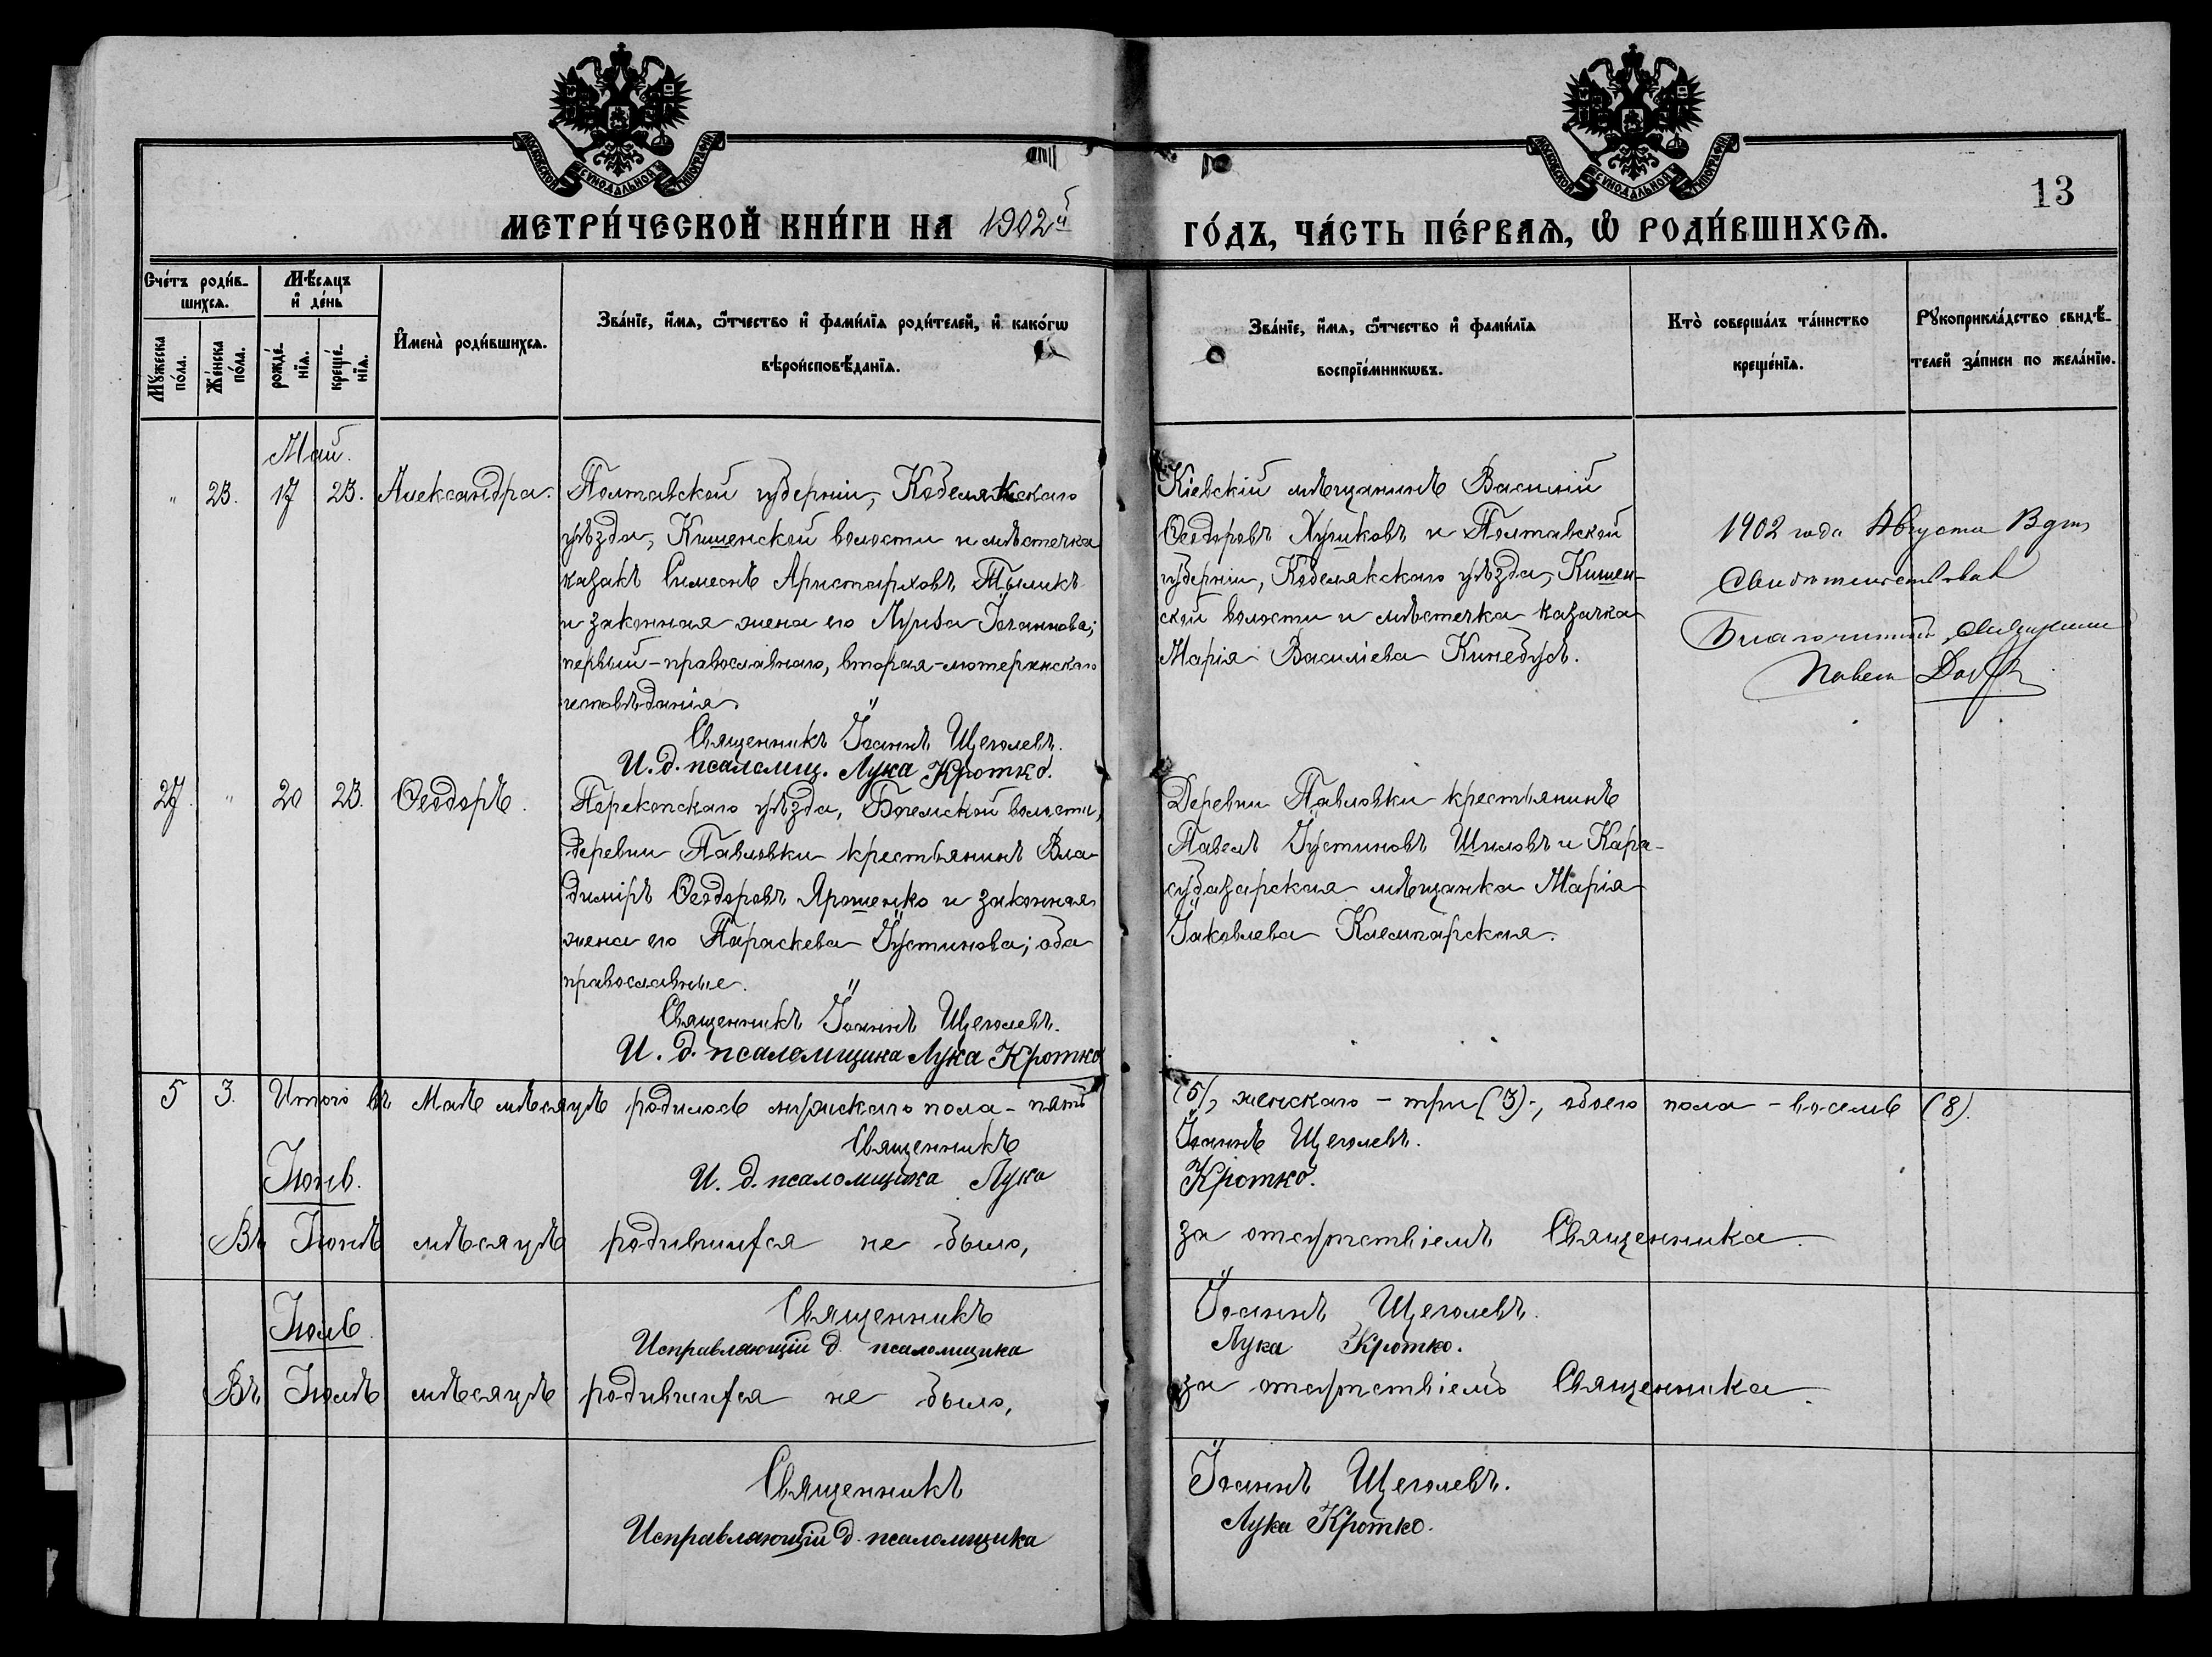 МОСКОВСКОЙ СѴНОДАЛЬНОЙ ТИПОГРАФІИ
МОСКОВСКОЙ СѴНОДАЛЬНОЙ ТИПОГРАФІИ
13
МЕТРИ́ЧЕСКОЙ КНИ́ГИ НА 1902й ГО́ДЪ, ЧА́СТЬ ПЕ́РВАѦ, Ѡ РОДИ́ВШИХСѦ.
Сче́тъ роди́в-
шихсѧ.
Мꙋ́жеска по́ла.
Же́нска по́ла.
Мѣ́сѧцъ
и҆ де́нь
рожде́нїѧ.
креще́нїѧ.
И҆мена̀ роди́вшихсѧ.
Зва́нїе, и҆́мѧ, ѻ҆́тчество и҆ фами́лїѧ роди́телей, и҆ како́гѡ
вѣроисповѣ́данїѧ.
Зва́нїе, и҆́мѧ, ѻ҆́тчество и҆ фами́лїѧ
воспрїе́мникѡвъ.
Кто̀ соверша́лъ та́инство
креще́нїѧ.
Рꙋкоприкла́дство свидѣ́-
телей за́писи по жела́нїю.
Май.
" 23. 17 23. Александра.
Полтавской губерніи, Кобелякскаго
уѣзда, Кишенской волости и мѣстечка
казакъ Симеонъ Аристарховъ Тыликъ
и законная жена его Луиза Іоганнова;
первый-православнаго, вторая-лютеранскаго
исповѣданія.
Священникъ Іоаннъ Щеголевъ.
И. д. псаломщ. Лука Кротко.
Кіевскій мѣщанинъ Василій
Ѳеодоровъ Хуриковъ и Полтавской
губерніи, Кобелякскаго уѣзда, Кишен-
ской волости и мѣстечка казачка
Марія Василіева Кинебусъ.
1902 года Августа
Свидѣтельствовалъ
Благочинный Священникъ
Павелъ
27. " 20 23. Ѳеодоръ.
Перекопскаго уѣзда, Богемской волости,
деревни Павловки крестьянинъ Вла-
диміръ Ѳеодоровъ Ярошенко и законная
жена его Параскева Іустинова; оба
православные.
Священникъ Іоаннъ Щеголевъ.
И. д. псаломщика Лука Кротко
Деревни Павловки крестьянинъ
Павелъ Іустиновъ Шиловъ и Кара-
субазарская мѣщанка Марія
Іаковлева Клемпарская.
5 3. Итого въ Маѣ мѣсяцѣ родилось мужскаго пола - пять (5), женскаго - три (3), обоего пола - восемь (8).
Священникъ Іоаннъ Щеголевъ.
И. д. псаломщика Лука Кротко.
Іюнь.
Въ Іюнѣ мѣсяцѣ родившихся не было, за отсутствіемъ Священника.
Священникъ Іоаннъ Щеголевъ.
Исправляющій д. псаломщика Лука Кротко.
Іюль.
Въ Іюлѣ мѣсяцѣ родившихся не было, за отсутствіемъ Священника.
Священникъ Іоаннъ Щеголевъ.
Исправляющій д. псаломщика Лука Кротко.